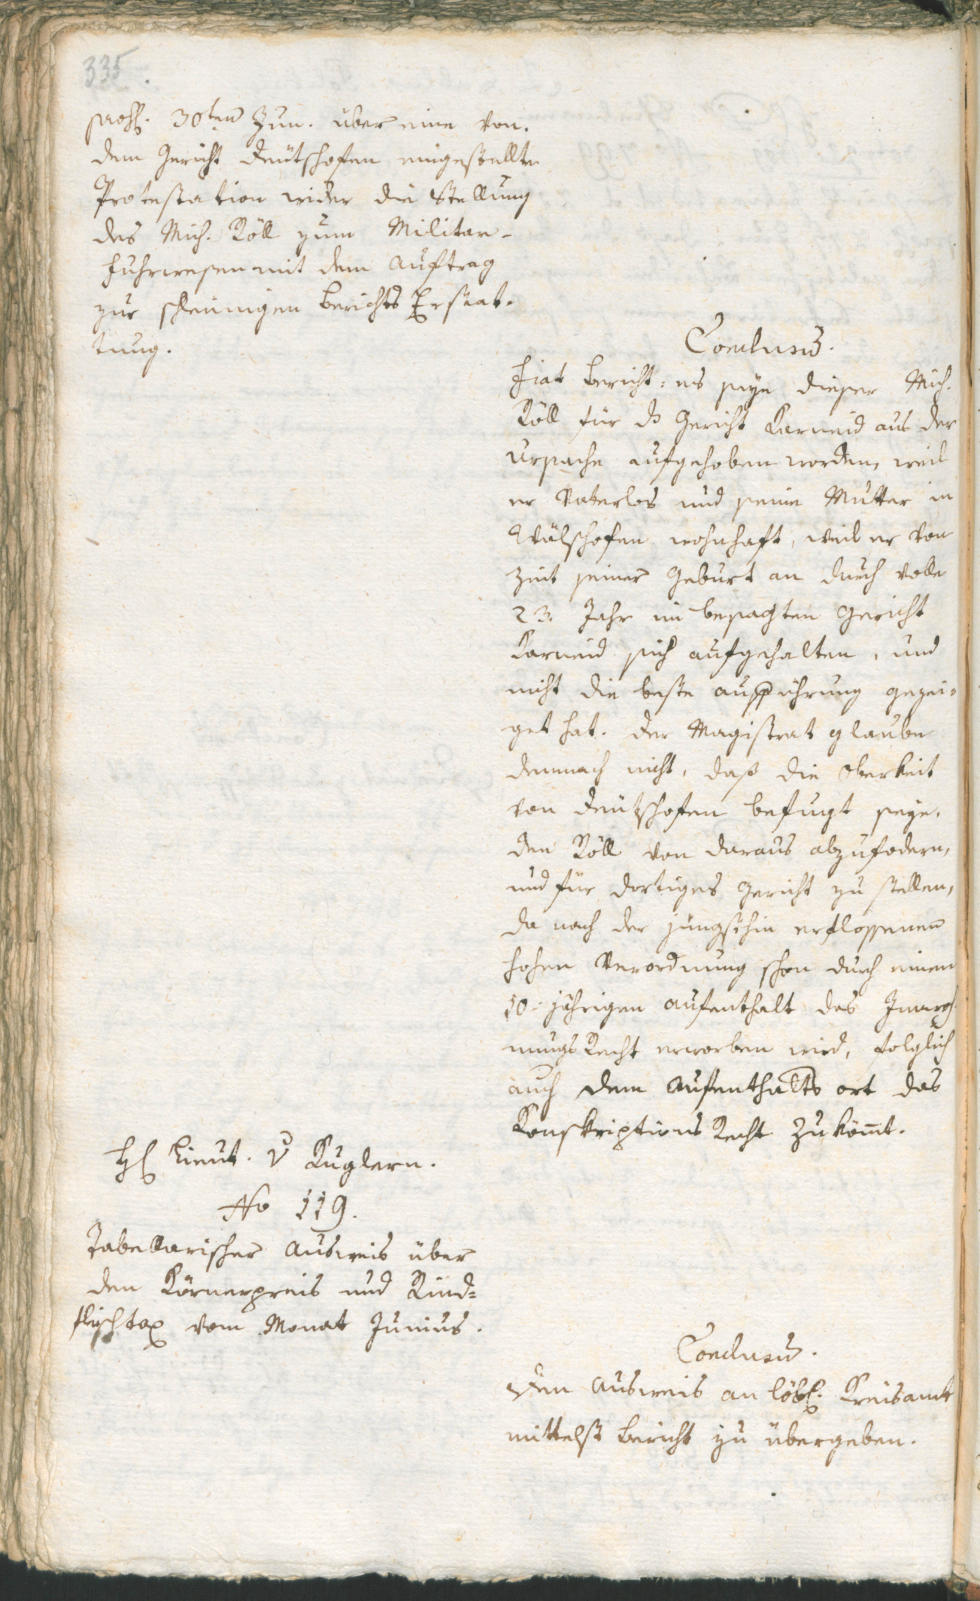 335.
praes. 30ten Jun. über eine von
dem Gericht Deutschofen eingestellte
Protestation wider die Stellung
des Mich. Köll zum Militar-
fuhrwesen mit dem Auftrag
zur schleinigen Berichts Erstat-
tung.
Conclusum.
Fiat Bericht: es seye dieser Mich.
Köll für das Gericht Karneid aus der
Ursache aufgehoben worden, weil
er Vaterlos und seine Mutter in
Wälschofen wohnhaft, weil er von
Zeit seiner Geburt an durch volle
23. Jahr im besagten Gericht
Karneid sich aufgehalten, und
nicht die beste Aufführung gezei-
get hat. Der Magistrat glaube
demnach nicht, daß die Oberkeit
von Deutschofen befugt seye,
den Köll von daraus abzufodern,
und für dortiges Gericht zu stellen,
da nach der jüngsthin erflossenen
hohen Verordnung schon durch einen
10-jährigen Aufenthalt das
Recht erworben wird, folglich
auch dem Aufenthalts ort das
Konskriptions Recht zukömt.
H Lieut. v Kuglern.
No 119.
Tabellarischer Ausweis über
den Körnerpreis und Rind-
fleischtax vom Monat Junius.
Conclusum.
Den Ausweis an löbl. Kreisamt
mittelst Bericht zu übergeben.